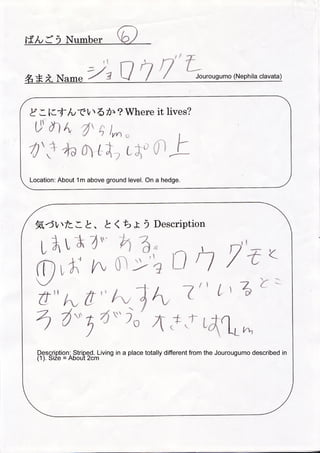 ばんごう Number ⑥
名まえ Name ジョロウグモ
Jourougumo (Nephila clavata)
どこにすんでいるか？Where it lives?
じめんから1m。
かきねのはっぱの上
Location: About 1m above ground level. On a hedge.
気づいたこと、とくちょう Description
しましまがある。
①ばんのジョロウグモと
ぜんぜんすんでいるとこ
ろがちがう。大きさは2cm
Description: Striped. Living in a place totally different from the Jourougumo described in
(1). Size = About 2cm